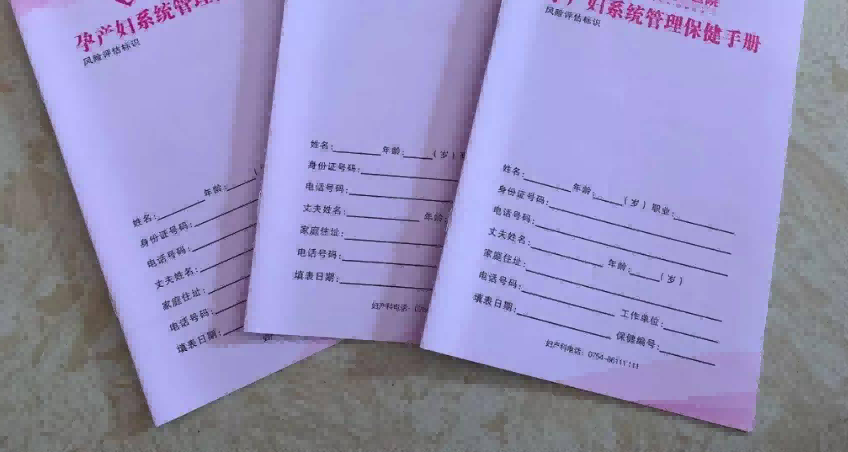 孕产妇系统管理
风险评估标识
姓名: 年龄:
身份证号码:
电话号码:
丈夫姓名:
家庭住址:
电话号码:
填表日期:
姓名: 年龄: (岁)
身份证号码:
电话号码:
丈夫姓名: 年龄:
家庭住址:
电话号码:
填表日期:
妇产科电话:
产妇系统管理保健手册
风险评估标识
姓名: 年龄: (岁) 职业:
身份证号码:
电话号码:
丈夫姓名: 年龄: (岁)
家庭住址:
电话号码: 工作单位:
填表日期: 保健编号:
妇产科电话: 0754-86111111